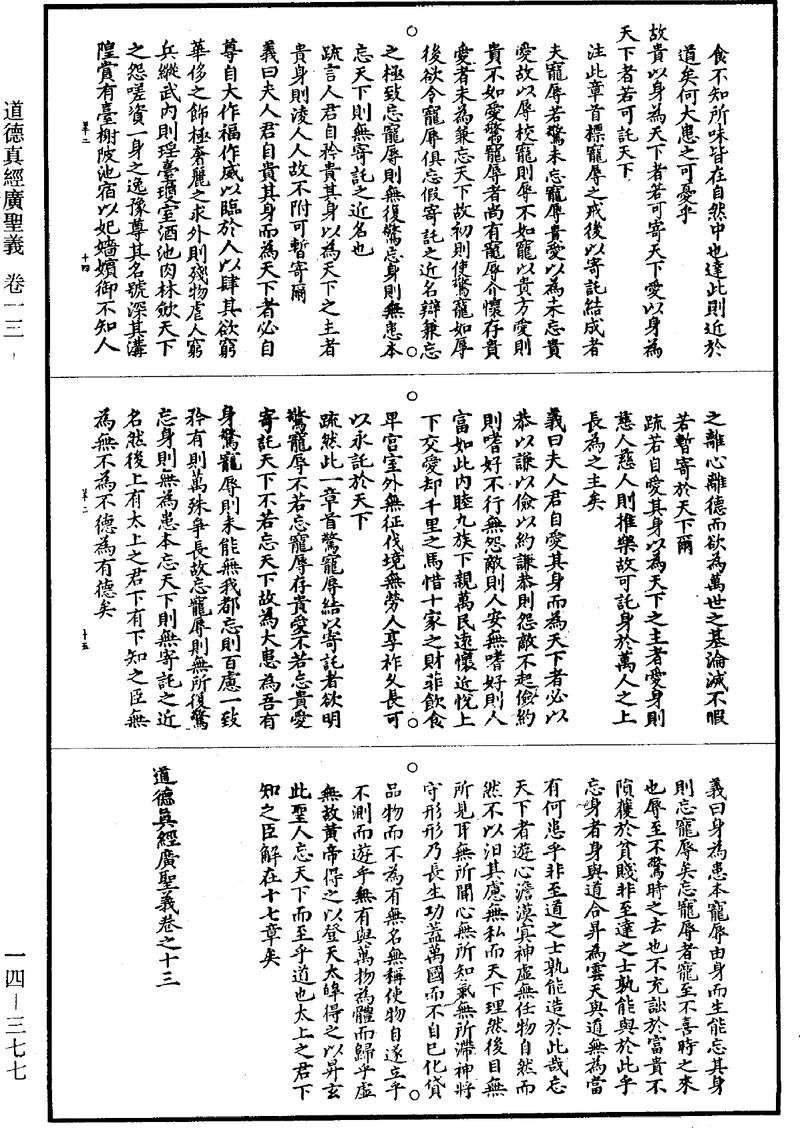 道德真經廣聖義 卷一三
一四—三七七
食不知所味皆在自然中也達此則近於
道矣何大患之可憂乎
故貴以身為天下者若可寄天下愛以身為
天下者若可託天下
注此章首標寵辱之戒後以寄託結成者
夫寵辱若驚未忘寵辱貴愛以為未忘貴
愛故以辱校寵則辱不如寵以貴方愛則
貴不如愛驚寵辱者尚有寵辱介懷存貴
愛者未為兼忘天下故初則使驚寵如辱
後欲令寵辱俱忘假寄託之近名辯兼忘
之極致忘寵辱則無復驚忘身則無患本
忘天下則無寄託之近名也
疏言人君自矜貴其身以為天下之主者
貴身則淩人人故不附可暫寄爾
義曰夫人君自貴其身而為天下者必自
尊自大作福作威以臨於人以肆其欲窮
華侈之飾極奢麗之求外則殘物虐人窮
兵縱武內則瑤臺瓊室酒池肉林斂天下
之怨嗟資一身之逸豫尊其名號深其溝
隍賞有臺榭陂池宿以妃嬙嬪御不知人
羊二
十四
之離心離德而欲為萬世之基淪滅不暇
若暫寄於天下爾
疏若自愛其身以為天下之主者愛身則
慈人慈人則推樂故可託身於萬人之上
長為之主矣
義曰夫人君自愛其身而為天下者必以
恭以謙以儉以約謙恭則怨敵不起儉約
則嗜好不行無怨敵則人安無嗜好則人
富如此內睦九族下親萬民遠懷近悅上
下交愛却千里之馬惜十家之財菲飲食
卑宮室外無征伐境無勞人享祚久長可
以永託於天下
疏然此一章首驚寵辱結以寄託者欲明
驚寵辱不若忘寵辱存貴愛不若忘貴愛
寄託天下不若忘天下故為大患為吾有
身驚寵辱則未能無我都忘則百慮一致
矜有則萬殊爭長故忘寵辱則無所復驚
忘身則無為患本忘天下則無寄託之近
名然後上有太上之君下有下知之臣無
為無不為不德為有德矣
羊二
十五
義曰身為患本寵辱由身而生能忘其身
則忘寵辱矣忘寵辱者寵至不喜時之來
也辱至不驚時之去也不充詘於富貴不
隕獲於貧賤非至達之士孰能與於此乎
忘身者身與道合昇為雲天與道無為當
有何患乎非至道之士孰能造於此哉忘
天下者遊心澹漠寞神虛無任物自然而
然不以汨其慮無私而天下理然後目無
所見耳無所聞心無所知氣無所滯神將
守形形乃長生功蓋萬國而不自已化貸
品物而不為有無名無稱使物自遂立乎
不測而遊乎無有與萬物為體而歸乎虛
無故黃帝得之以登天太皞得之以昇玄
此聖人忘天下而至乎道也太上之君下
知之臣解在十七章矣
道德真經廣聖義卷之十三